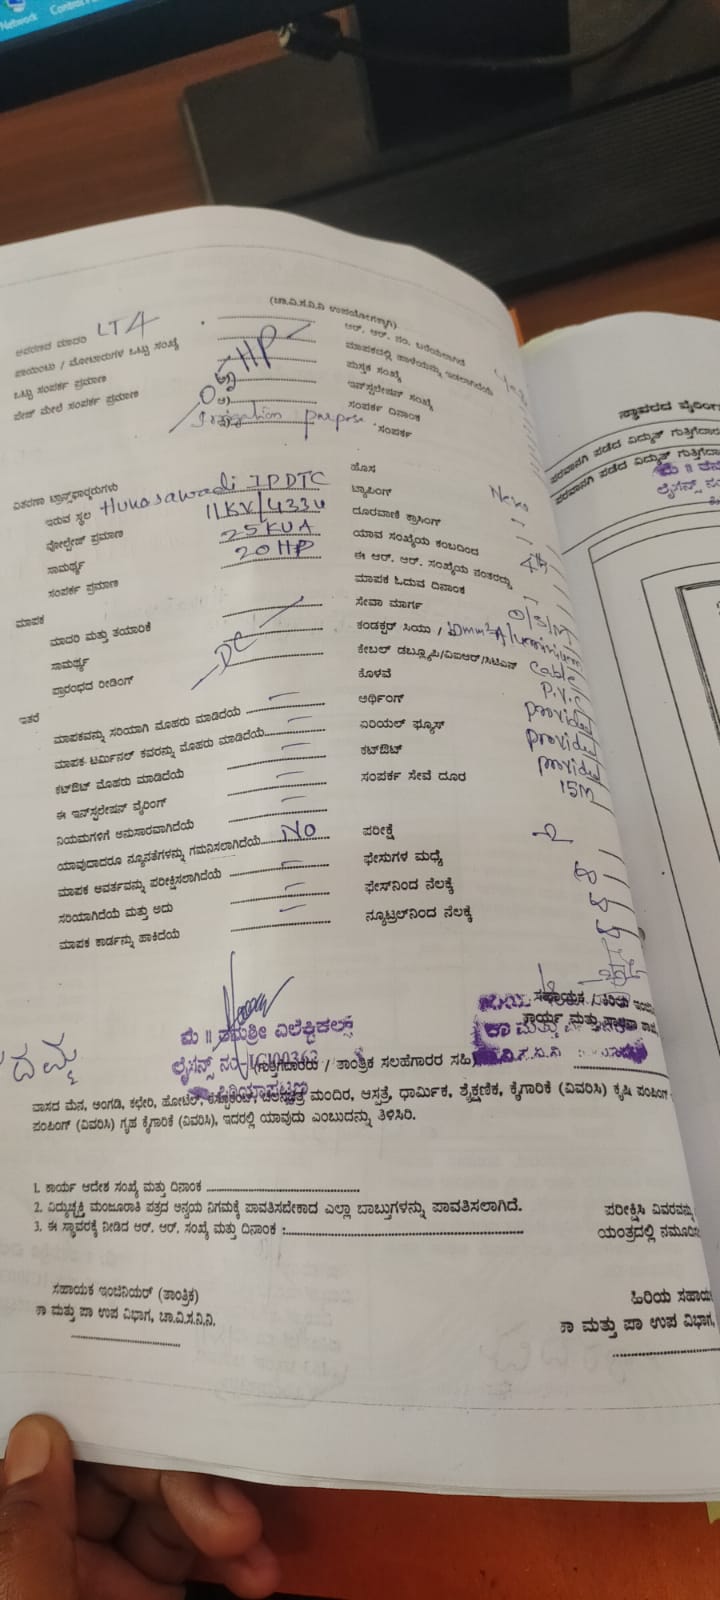 Network
(ಚಾ.ವಿ.ಸ.ನಿ.ನಿ ಉಪಯೋಗಕ್ಕಾಗಿ)
ಆವರಣದ ಮಾದರಿ LT4
ಆರ್. ಆರ್. ನಂ. ಬರೆಯಲಾಗಿದೆ
ಪಾಯಿಂಟು / ಮೋಟಾರುಗಳ ಒಟ್ಟು ಸಂಖ್ಯೆ
ಮಾಪಕದಲ್ಲಿ ಹಾಳೆಯನ್ನು ಇಡಲಾಗಿದೆಯೆ
ಒಟ್ಟು ಸಂಪರ್ಕ ಪ್ರಮಾಣ 5HP
ಪುಸ್ತಕ ಸಂಖ್ಯೆ
ಪೇಜ್ ಮೇಲೆ ಸಂಪರ್ಕ ಪ್ರಮಾಣ
ಇನ್‌ಸ್ಟಲೇಷನ್ ಸಂಖ್ಯೆ
ಸಂಪರ್ಕ ದಿನಾಂಕ
Irrigation purpose
ಸಂಪರ್ಕ
ವಿತರಣಾ ಟ್ರಾನ್ಸ್‌ಫಾರ್ಮರುಗಳು
ಹೊಸ New
ಇರುವ ಸ್ಥಲ Hunasawadi IPDTC
ಟ್ಯಾಪಿಂಗ್ -
ವೋಲ್ಟೇಜ್ ಪ್ರಮಾಣ 11KV/433V
ದೂರವಾಣಿ ಕ್ರಾಸಿಂಗ್ -
ಸಾಮರ್ಥ್ಯ 25KVA
ಯಾವ ಸಂಖ್ಯೆಯ ಕಂಬದಿಂದ 4th
ಸಂಪರ್ಕ ಪ್ರಮಾಣ 20HP
ಈ ಆರ್. ಆರ್. ಸಂಖ್ಯೆಯ ನಂತರದ್ದು
ಮಾಪಕ
ಮಾಪಕ ಓದುವ ದಿನಾಂಕ -
ಮಾದರಿ ಮತ್ತು ತಯಾರಿಕೆ
ಸೇವಾ ಮಾರ್ಗ
ಸಾಮರ್ಥ್ಯ DC
ಕಂಡಕ್ಟರ್ ಸಿಯು / 10mm² Aluminium
ಪ್ರಾರಂಭದ ರೀಡಿಂಗ್
ಕೇಬಲ್ ಡಬ್ಲ್ಯೂಪಿ/ವಿಐಆರ್/ಸಿಟಿಎಸ್ Cable
ಇತರೆ
ಕೊಳವೆ P.V.C
ಮಾಪಕವನ್ನು ಸರಿಯಾಗಿ ಮೊಹರು ಮಾಡಿದೆಯೆ -
ಅರ್ಥಿಂಗ್ provided
ಮಾಪಕ ಟರ್ಮಿನಲ್ ಕವರನ್ನು ಮೊಹರು ಮಾಡಿದೆಯೆ -
ಏರಿಯಲ್ ಫ್ಯೂಸ್ provided
ಕಟ್‌ಔಟ್ ಮೊಹರು ಮಾಡಿದೆಯೆ -
ಕಟ್‌ಔಟ್ provided
ಈ ಇನ್‌ಸ್ಟಲೇಷನ್ ವೈರಿಂಗ್ -
ಸಂಪರ್ಕ ಸೇವೆ ದೂರ 15M
ನಿಯಮಗಳಿಗೆ ಅನುಸಾರವಾಗಿದೆಯೆ -
ಯಾವುದಾದರೂ ನ್ಯೂನತೆಗಳನ್ನು ಗಮನಿಸಲಾಗಿದೆಯೆ No
ಪರೀಕ್ಷೆ
ಮಾಪಕ ಆವರ್ತವನ್ನು ಪರೀಕ್ಷಿಸಲಾಗಿದೆಯೆ -
ಫೇಸುಗಳ ಮಧ್ಯೆ
ಸರಿಯಾಗಿದೆಯೆ ಮತ್ತು ಅದು -
ಫೇಸ್‌ನಿಂದ ನೆಲಕ್ಕೆ
ಮಾಪಕ ಕಾರ್ಡನ್ನು ಹಾಕಿದೆಯೆ -
ನ್ಯೂಟ್ರಲ್‌ನಿಂದ ನೆಲಕ್ಕೆ
ಮೆ॥ ತನುಶ್ರೀ ಎಲೆಕ್ಟ್ರಿಕಲ್ಸ್
ಸಹಾಯಕ / ಕಿರಿಯ ಇಂಜಿ
ಲೈಸೆನ್ಸ್ ನಂ
ಕಾರ್ಯ ಮತ್ತು ಪಾಲನಾ ಶಾಖೆ
ಗುತ್ತಿಗೆದಾರರು / ತಾಂತ್ರಿಕ ಸಲಹೆಗಾರರ ಸಹಿ
ಪಿರಿಯಾಪಟ್ಟಣ
ವಾಸದ ಮನೆ, ಅಂಗಡಿ, ಕಛೇರಿ, ಹೋಟೆಲ್, ರೆಸ್ಟೋರೆಂಟ್, ಚಲನಚಿತ್ರ ಮಂದಿರ, ಆಸ್ಪತ್ರೆ, ಧಾರ್ಮಿಕ, ಶೈಕ್ಷಣಿಕ, ಕೈಗಾರಿಕೆ (ವಿವರಿಸಿ) ಕೃಷಿ ಪಂಪಿಂಗ್
ಪಂಪಿಂಗ್ (ವಿವರಿಸಿ) ಗೃಹ ಕೈಗಾರಿಕೆ (ವಿವರಿಸಿ), ಇದರಲ್ಲಿ ಯಾವುದು ಎಂಬುದನ್ನು ತಿಳಿಸಿರಿ.
1. ಕಾರ್ಯ ಆದೇಶ ಸಂಖ್ಯೆ ಮತ್ತು ದಿನಾಂಕ
2. ವಿದ್ಯುಚ್ಛಕ್ತಿ ಮಂಜೂರಾತಿ ಪತ್ರದ ಅನ್ವಯ ನಿಗಮಕ್ಕೆ ಪಾವತಿಸಬೇಕಾದ ಎಲ್ಲಾ ಬಾಬ್ತುಗಳನ್ನು ಪಾವತಿಸಲಾಗಿದೆ.
ಪರೀಕ್ಷಿಸಿ ವಿವರವನ್ನು
3. ಈ ಸ್ಥಾವರಕ್ಕೆ ನೀಡಿದ ಆರ್. ಆರ್. ಸಂಖ್ಯೆ ಮತ್ತು ದಿನಾಂಕ :
ಯಂತ್ರದಲ್ಲಿ ನಮೂದಿಸ
ಸಹಾಯಕ ಇಂಜಿನಿಯರ್ (ತಾಂತ್ರಿಕ)
ಹಿರಿಯ ಸಹಾಯ
ಕಾ ಮತ್ತು ಪಾ ಉಪ ವಿಭಾಗ, ಚಾ.ವಿ.ಸ.ನಿ.ನಿ.
ಕಾ ಮತ್ತು ಪಾ ಉಪ ವಿಭಾಗ,
ಸ್ಥಾವರದ ವೈರಿಂಗ
ಪರವಾನಗಿ ಪಡೆದ ವಿದ್ಯುತ್ ಗುತ್ತಿಗೆದಾರ
ಪರವಾನಗಿ ಪಡೆದ ವಿದ್ಯುತ್ ಗುತ್ತಿಗೆದಾ
ಮೆ॥ ತನ
ಲೈಸೆನ್ಸ್ ನಂ